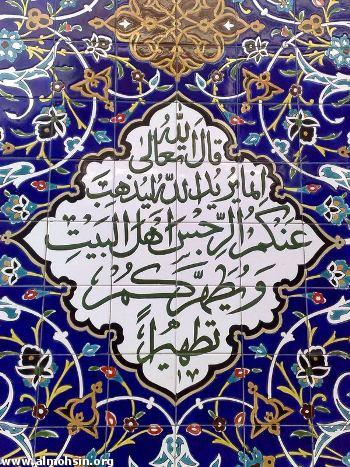 قال الله تعالى
إنما يريد الله ليذهب
عنكم الرجس أهل البيت
ويطهركم
تطهيراً
www.almohsin.org